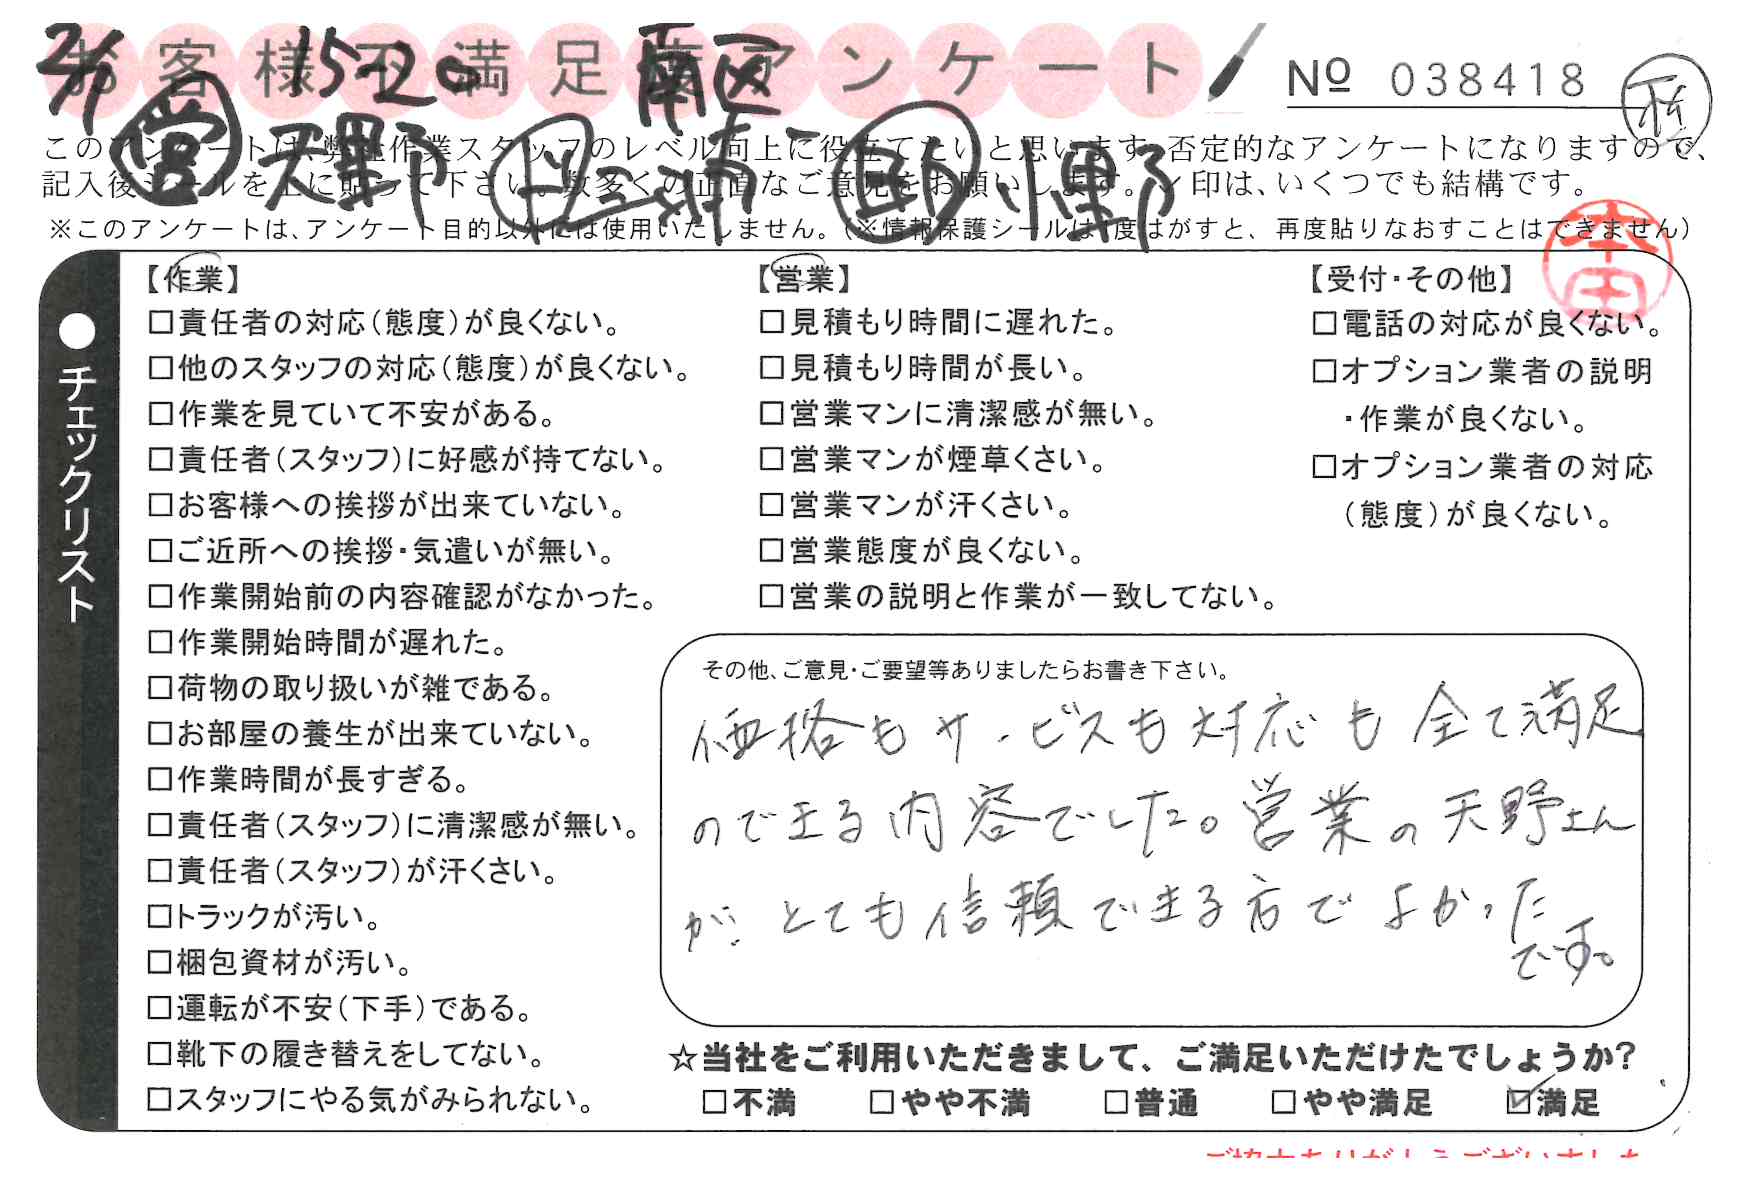 お客様不満足度アンケート
No 038418
2/1 15-20 南区
営 天野 三浦 小野
このアンケートは、弊社作業スタッフのレベル向上に役立てたいと思います。否定的なアンケートになりますので、
記入後シールを上に貼って下さい。数多くの正直なご意見をお願いします。レ印は、いくつでも結構です。
※このアンケートは、アンケート目的以外には使用いたしません。(※情報保護シールは1度はがすと、再度貼りなおすことはできません)
本田
●チェックリスト
【作業】
□責任者の対応(態度)が良くない。
□他のスタッフの対応(態度)が良くない。
□作業を見ていて不安がある。
□責任者(スタッフ)に好感が持てない。
□お客様への挨拶が出来ていない。
□ご近所への挨拶・気遣いが無い。
□作業開始前の内容確認がなかった。
□作業開始時間が遅れた。
□荷物の取り扱いが雑である。
□お部屋の養生が出来ていない。
□作業時間が長すぎる。
□責任者(スタッフ)に清潔感が無い。
□責任者(スタッフ)が汗くさい。
□トラックが汚い。
□梱包資材が汚い。
□運転が不安(下手)である。
□靴下の履き替えをしてない。
□スタッフにやる気がみられない。
【営業】
□見積もり時間に遅れた。
□見積もり時間が長い。
□営業マンに清潔感が無い。
□営業マンが煙草くさい。
□営業マンが汗くさい。
□営業態度が良くない。
□営業の説明と作業が一致してない。
【受付・その他】
□電話の対応が良くない。
□オプション業者の説明
・作業が良くない。
□オプション業者の対応
(態度)が良くない。
その他、ご意見・ご要望等ありましたらお書き下さい。
価格もサービスも対応も全て満足
のできる内容でした。営業の天野さん
が、とても信頼できる方でよかった
です。
☆当社をご利用いただきまして、ご満足いただけたでしょうか?
□不満 □やや不満 □普通 □やや満足 ☑満足
ご協力ありがとうございました